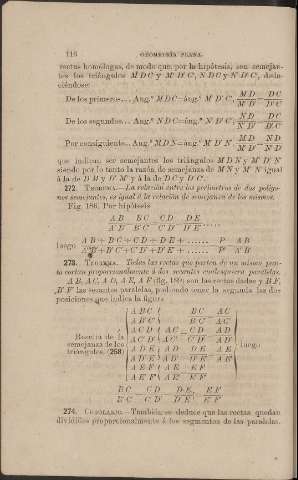 116 GEOMETRÍA PLANA.
rectas homólogas, de modo que, por la hipótesis, son semejan-
tes los triángulos M D C y M' D' C', N D C y N' D' C', dedu-
ciéndose:
De los primeros... Ang.º M D C=áng.º M' D' C', M D / M' D' = D C / D' C'
De los segundos... Ang.º N D C=áng.º N' D' C'; N D / N' D' = D C / D' C'
Por consiguiente... Ang.º M D N=áng.º M' D' N', M D / M' D' = N D / N' D'
que indican ser semejantes los triángulos M D N y M' D' N'
siendo por lo tanto la razón de semejanza de M N y M' N' igual
á la de D M y D' M' y á la de D C y D' C'.
272. TEOREMA.—La relación entre los perímetros de dos polígo-
nos semejantes, es igual á la relación de semejanza de los mismos.
Fig. 186. Por hipótesis
A B / A' B' = B C / B' C' = C D / C' D' = D E / D' E' .....
luego A B + B C + C D + D E + ...... / A' B' + B' C' + C' D' + D' E' + ...... = P / P' = A B / A' B'
273. TEOREMA. Todas las rectas que parten de un mismo pun-
to cortan proporcionalmente á dos secantes cualesquiera paralelas.
A B, A C, A D, A E, A F (fig. 189) son las rectas dadas y B F,
B' F' las secantes paralelas, pudiendo tener la segunda las dos
posiciones que indica la figura.
A B C / A B' C' B C / B' C' = A C / A C'
Razón de la
semejanza de los
triángulos. (258)
A C D / A C' D' A C / A C' = C D / C' D' = A D / A D'
luego
A D E / A D' E' A D / A D' = D E / D' E' = A E / A E'
A E F / A E' F' A E / A E' = E F / E' F'
B C / B' C' = C D / C' D' = D E / D' E' = E F / E' F'
274. COROLARIO.—También se deduce que las rectas quedan
divididas proporcionalmente á los segmentos de las paralelas.